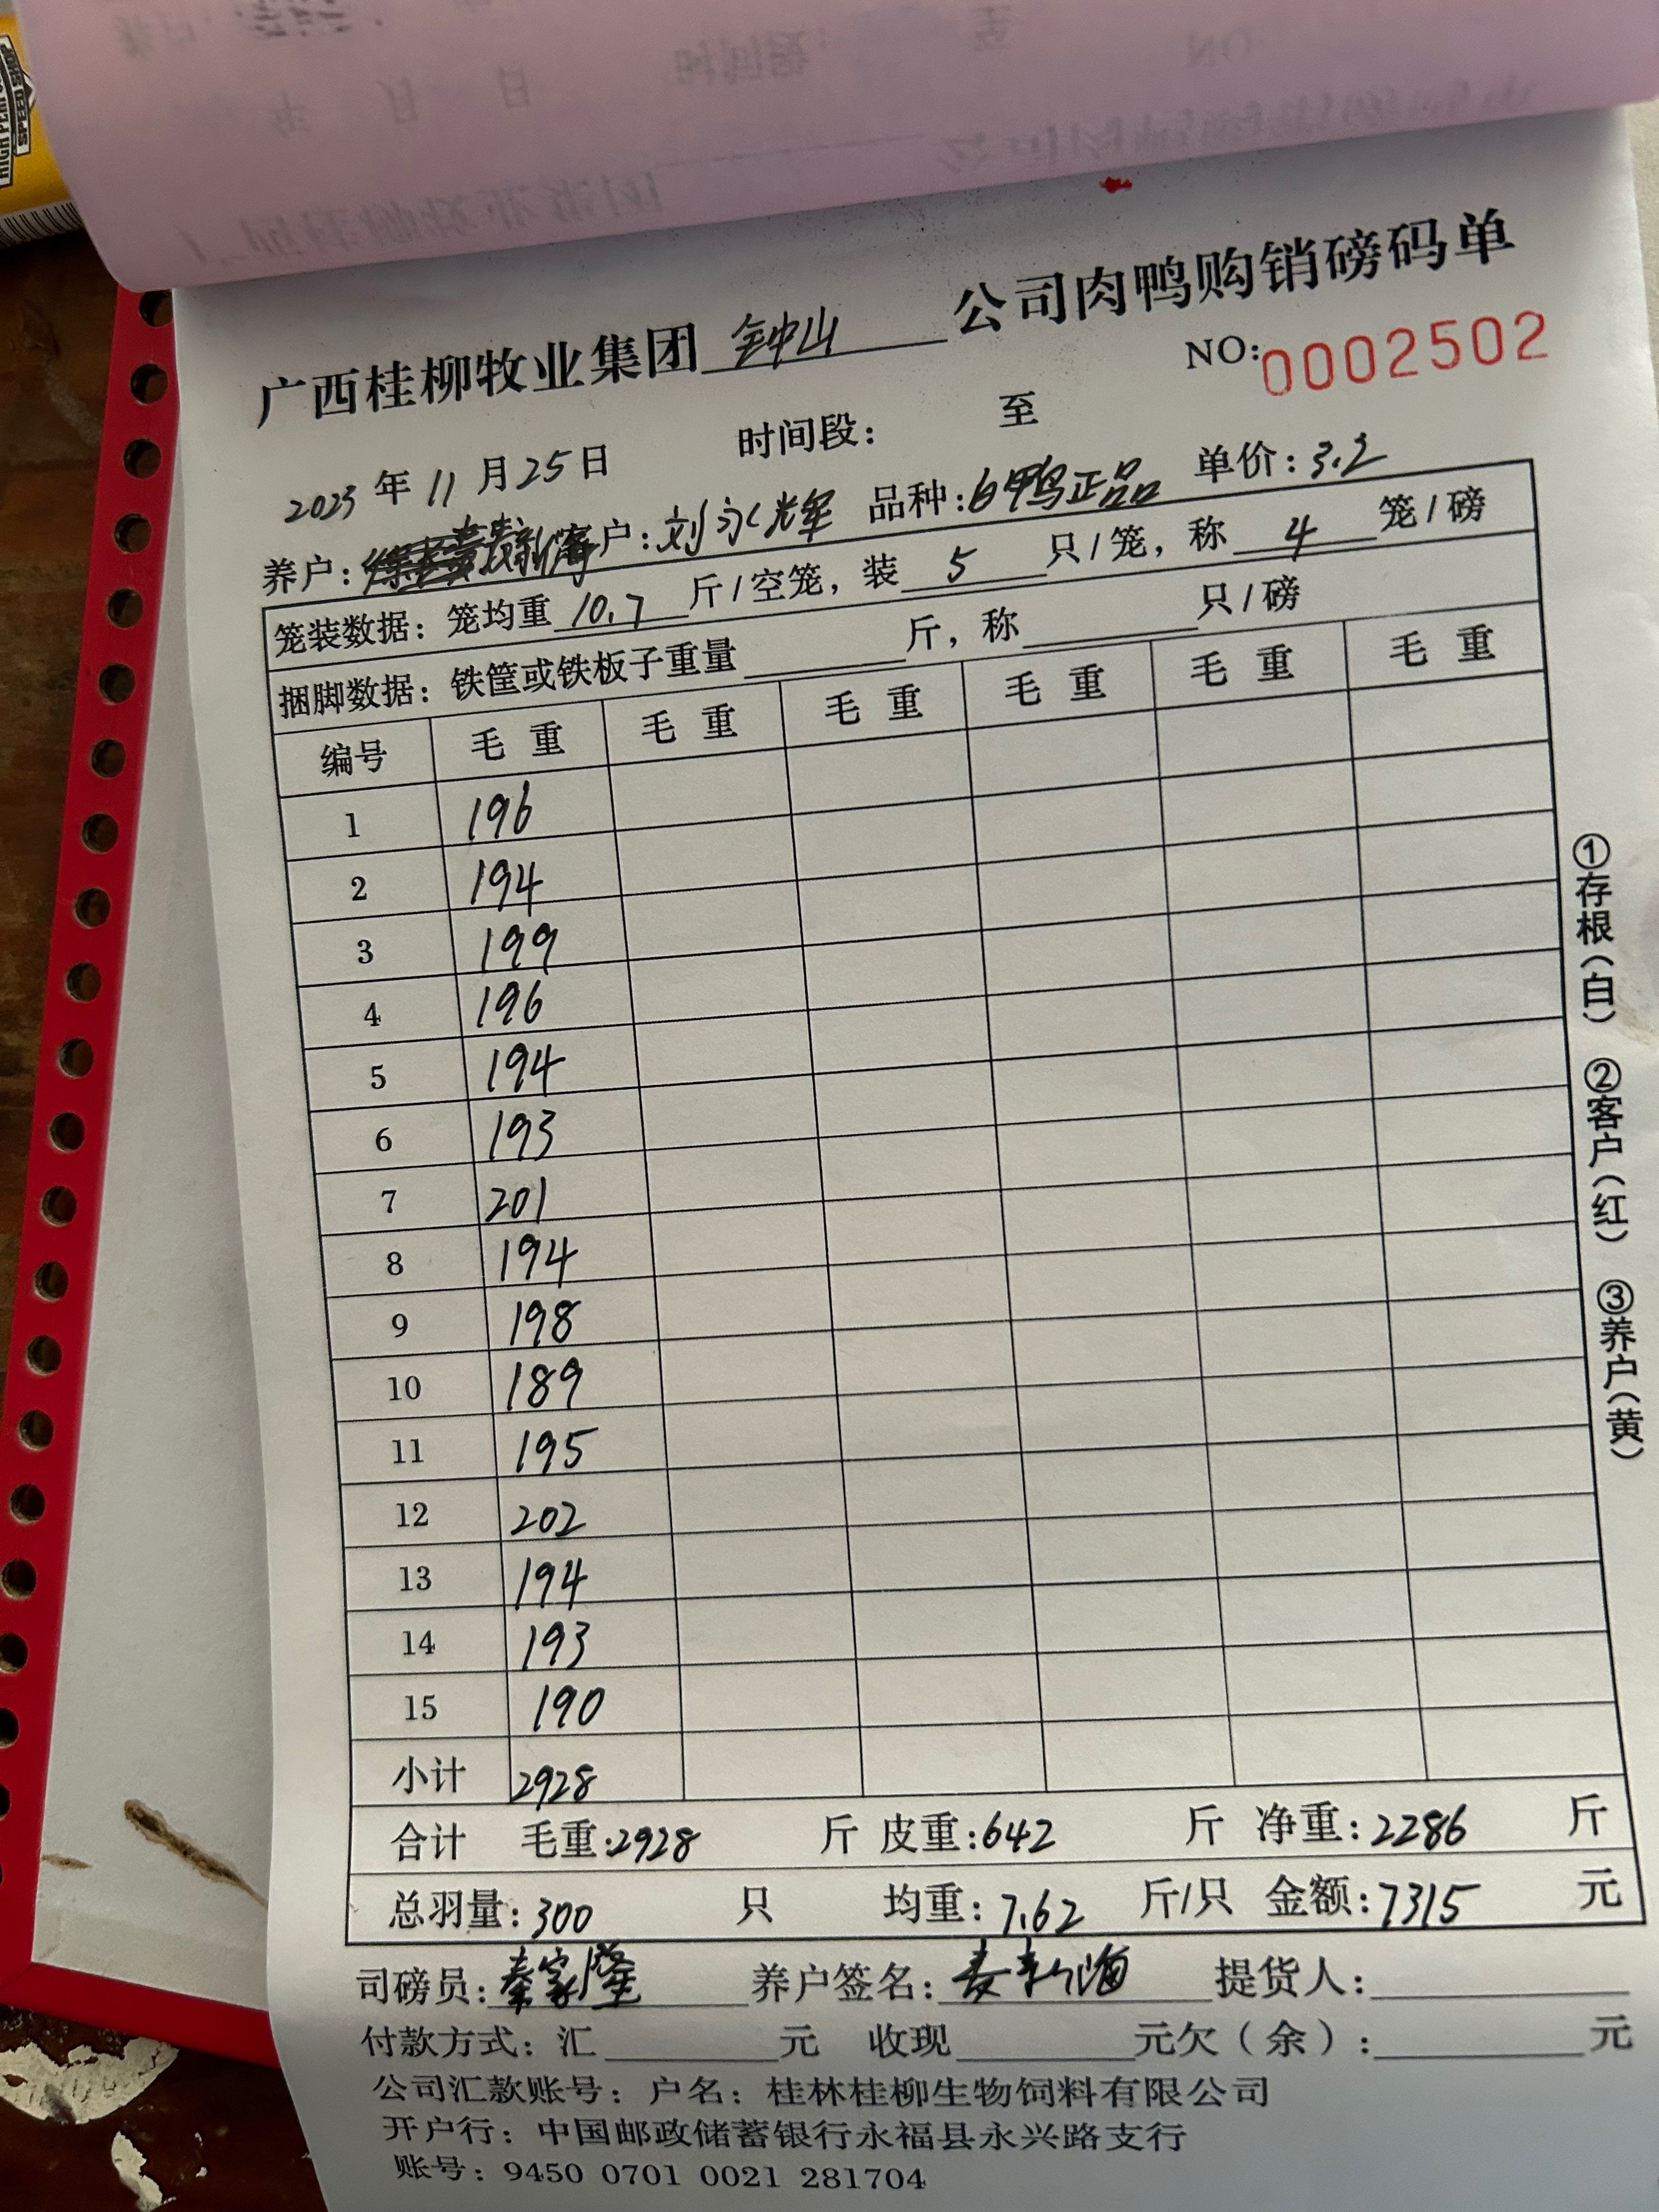 SPEED SHOP
广西桂柳牧业集团 钟山 公司肉鸭购销磅码单
NO:0002502
2023 年 11 月 25 日 时间段: 至
养户: 客户:刘永辉 品种:白鸭正品 单价:3.2
笼装数据:笼均重 10.7 斤/空笼,装 5 只/笼,称 4 笼/磅
捆脚数据:铁筐或铁板子重量 斤,称 只/磅
编号 毛重 毛重 毛重 毛重 毛重 毛重
1 196
2 194
3 199
4 196
5 194
6 193
7 201
8 194
9 198
10 189
11 195
12 202
13 194
14 193
15 190
小计 2928
合计 毛重:2928 斤 皮重:642 斤 净重:2286 斤
总羽量:300 只 均重:7.62 斤/只 金额:7315 元
司磅员:秦家隆 养户签名:麦新海 提货人:
付款方式:汇 元 收现 元欠(余): 元
公司汇款账号:户名:桂林桂柳生物饲料有限公司
开户行:中国邮政储蓄银行永福县永兴路支行
账号:9450 0701 0021 281704
①存根(白) ②客户(红) ③养户(黄)